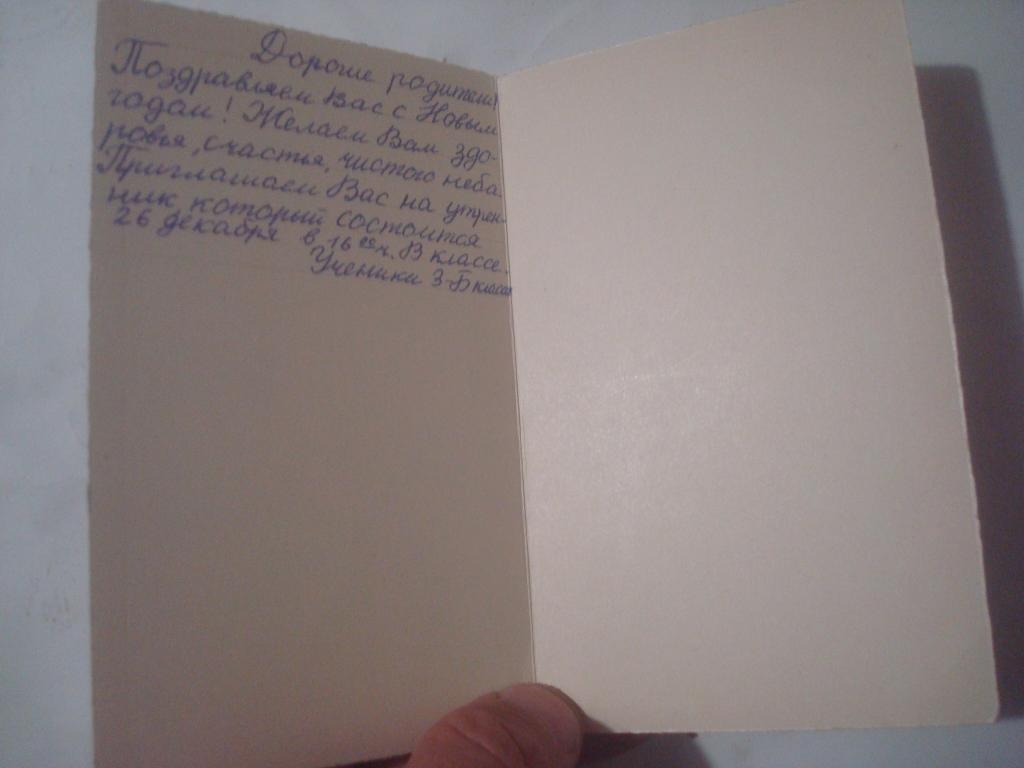 Дорогие родители!
Поздравляем Вас с Новым
годом! Желаем Вам здо-
ровья, счастья, чистого неба.
Приглашаем Вас на утрен-
ник, который состоится
26 декабря в 16 00 ч. В классе.
Ученики 3-Б класса